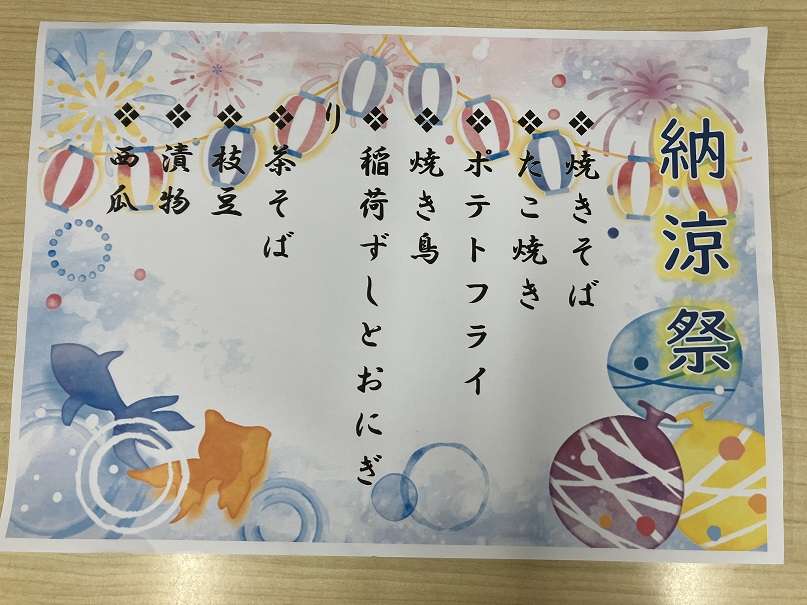 納涼祭
❖ 焼きそば
❖ たこ焼き
❖ ポテトフライ
❖ 焼き鳥
❖ 稲荷ずしとおにぎ
り
❖ 茶そば
❖ 枝豆
❖ 漬物
❖ 西瓜